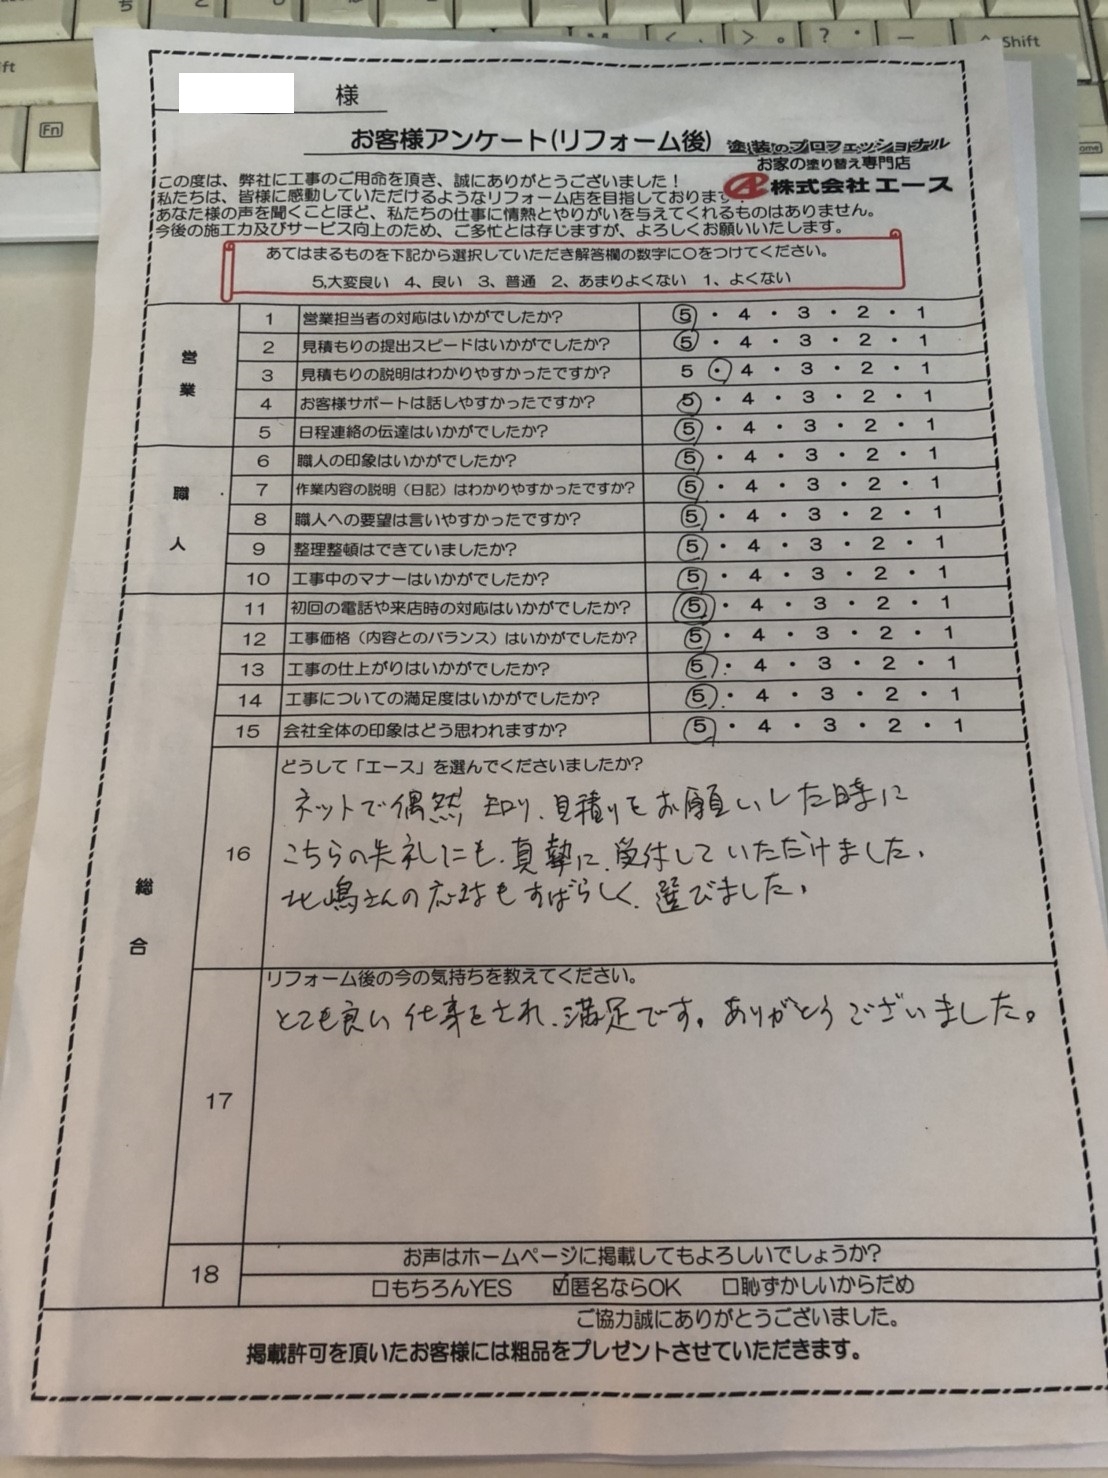 様
お客様アンケート(リフォーム後)
塗装のプロフェッショナル
お家の塗り替え専門店
株式会社エース
この度は、弊社に工事のご用命を頂き、誠にありがとうございました！
私たちは、皆様に感動していただけるようなリフォーム店を目指しております。
あなた様の声を聞くことほど、私たちの仕事に情熱とやりがいを与えてくれるものはありません。
今後の施工力及びサービス向上のため、ご多忙とは存じますが、よろしくお願いいたします。
あてはまるものを下記から選択していただき解答欄の数字に〇をつけてください。
5,大変良い 4、良い 3、普通 2、あまりよくない 1、よくない
営業
1 営業担当者の対応はいかがでしたか? 5・4・3・2・1
2 見積もりの提出スピードはいかがでしたか? 5・4・3・2・1
3 見積もりの説明はわかりやすかったですか? 5・4・3・2・1
4 お客様サポートは話しやすかったですか? 5・4・3・2・1
5 日程連絡の伝達はいかがでしたか? 5・4・3・2・1
職人
6 職人の印象はいかがでしたか? 5・4・3・2・1
7 作業内容の説明（日記）はわかりやすかったですか? 5・4・3・2・1
8 職人への要望は言いやすかったですか? 5・4・3・2・1
9 整理整頓はできていましたか? 5・4・3・2・1
10 工事中のマナーはいかがでしたか? 5・4・3・2・1
総合
11 初回の電話や来店時の対応はいかがでしたか? 5・4・3・2・1
12 工事価格（内容とのバランス）はいかがでしたか? 5・4・3・2・1
13 工事の仕上がりはいかがでしたか? 5・4・3・2・1
14 工事についての満足度はいかがでしたか? 5・4・3・2・1
15 会社全体の印象はどう思われますか? 5・4・3・2・1
16 どうして「エース」を選んでくださいましたか?
ネットで偶然 知り、見積りをお願いした時に
こちらの失礼にも、真摯に、受付していただけました。
北嶋さんの応対もすばらしく、選びました。
17 リフォーム後の今の気持ちを教えてください。
とても良い仕事をされ、満足です。ありがとうございました。
18 お声はホームページに掲載してもよろしいでしょうか?
□もちろんYES ☑匿名ならOK □恥ずかしいからだめ
ご協力誠にありがとうございました。
掲載許可を頂いたお客様には粗品をプレゼントさせていただきます。
Shift
Fn